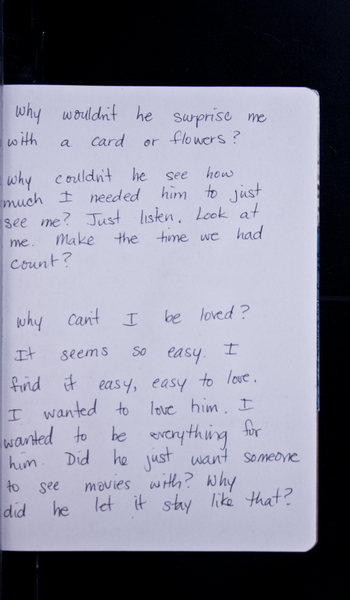 Why wouldn't he surprise me
with a card or flowers?
Why couldn't he see how
much I needed him to just
see me? Just listen. Look at
me. Make the time we had
count?
Why can't I be loved?
It seems so easy. I
find it easy, easy to love.
I wanted to love him. I
wanted to be everything for
him. Did he just want someone
to see movies with? Why
did he let it stay like that?